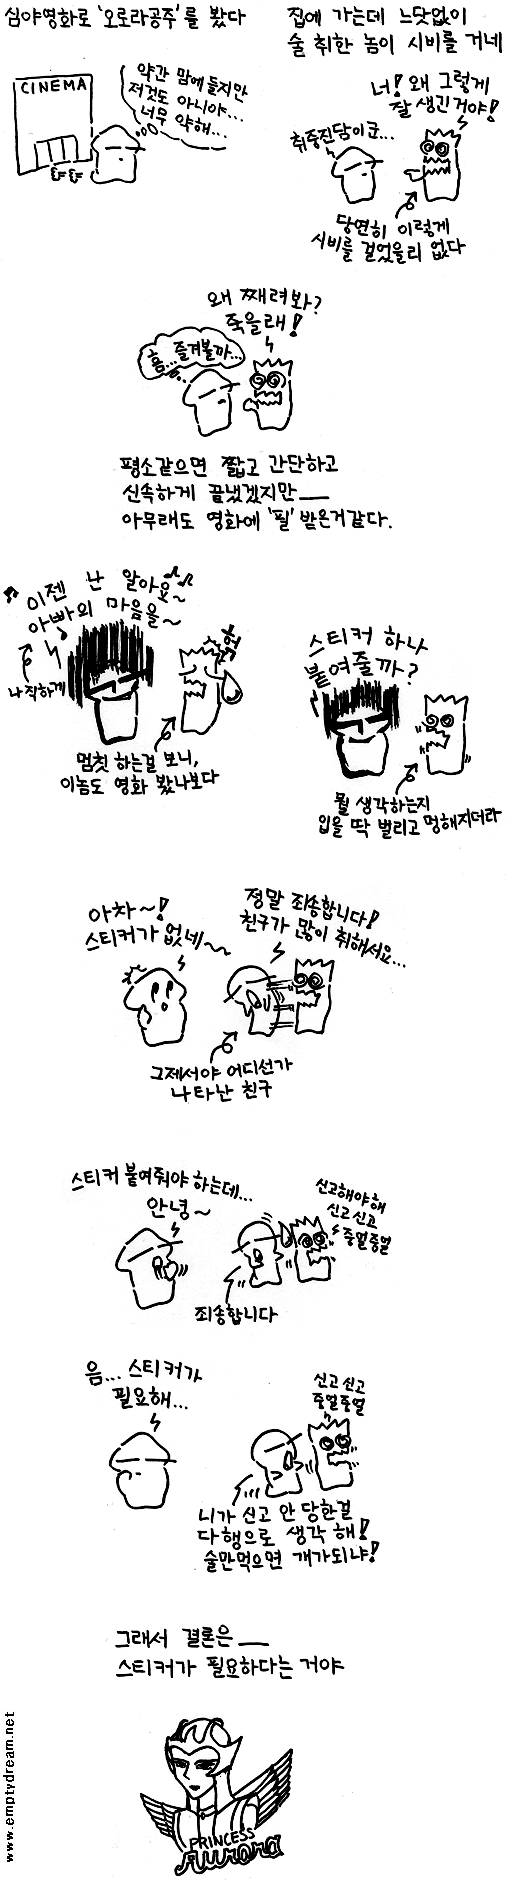 심야영화로 '오로라공주'를 봤다
CINEMA
약간 맘에 들지만
저것도 아니야...
너무 약해...
집에 가는데 느닷없이
술 취한 놈이 시비를 거네
너! 왜 그렇게
잘 생긴거야!
취중진담이군...
당연히 이렇게
시비를 걸었을리 없다
왜 째려봐?
죽을래!
흠... 즐겨볼까...
평소같으면 짧고 간단하고
신속하게 끝냈겠지만——
아무래도 영화에 '필' 받은거같다.
이젠 난 알아요~
아빠의 마음을~
나직하게
헉
멈칫 하는걸 보니,
이놈도 영화 봤나보다
스티커 하나
붙여줄까?
뭘 생각하는지
입을 딱 벌리고 멍해지더라
아차~!
스티커가 없네~~
정말 죄송합니다!
친구가 많이 취해서요...
그제서야 어디선가
나타난 친구
스티커 붙여줘야 하는데...
안녕~
신고해야해
신고신고
중얼중얼
죄송합니다
음... 스티커가
필요해...
신고신고
중얼중얼
니가 신고 안 당한걸
다행으로 생각 해!
술만먹으면 개가되냐!
그래서 결론은——
스티커가 필요하다는 거야
PRINCESS
Aurora
www.emptydream.net